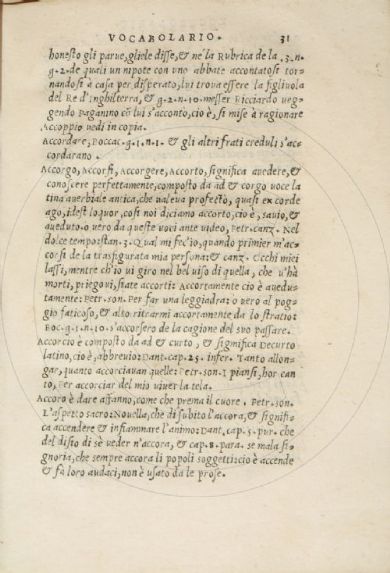 VOCABOLARIO. 31
honesto gli parue, gliele disse, & ne la Rubrica de la .3.n.
g.2. de quali un nipote con uno abbate accontatosi tor-
nandosi à casa per disperato, lui trova essere la figliuola
del Re d'Inghilterra, & g.2.n.10. messer Ricciardo ueg-
gendo Paganino cō lui s'acconto, ciò è, si mise à ragionare
Accoppio uedi in copia.
Accordare, Boccac.g.1.n.1. & gli altri frati creduli s'ac-
cordarano.
Accorgo, Accorsi, Accorgere, Accorto, significa auedere, &
conoscere perfettamente, composto da ad & corgo uoce la
tina auerbiale antica, che ualeua profecto, quasi ex corde
ago, idest loquor, cosi noi diciamo accorto, ciò è, sauio, &
aueduto. o uero da queste voci ante video, Petr. canz. Nel
dolce tempo stan.3. Qual mi fec'io, quando primier m'ac-
corsi de la trasfigurata mia persona: & canz. Occhi miei
lassi, mentre ch'io vi giro nel bel uiso di quella, che u'hà
morti, priego vi, siate accorti: Accortamente cio è auedu-
tamente: Petr. son. Per far una leggiadra: o uero al pog-
gio faticoso, & alto ritrarmi accortamente da lo stratio:
Boc.g.1.n.10. s'accorsero de la cagione del suo passare.
Accorcio è composto da ad & curto, & significa Decurto
latino, cio è, abbreuio: Dant. cap.25. infer. Tanto allon-
gar, quanto accorciauan quelle: Petr. son. I piansi, hor can
to, Per accorciar del mio viuer la tela.
Accoro è dare affanno, come che prema il cuore. Petr. son.
L'aspetto sacro: Nouella, che di subito l'accora, & signifi-
ca accendere & infiammare l'animo: Dant, cap.5. pur. che
del disio di sè ueder n'accora, & cap.8. para. se mala si-
gnoria, che sempre accora li popoli soggetti: cio è accende
& fà loro audaci, non è usato da le prose.